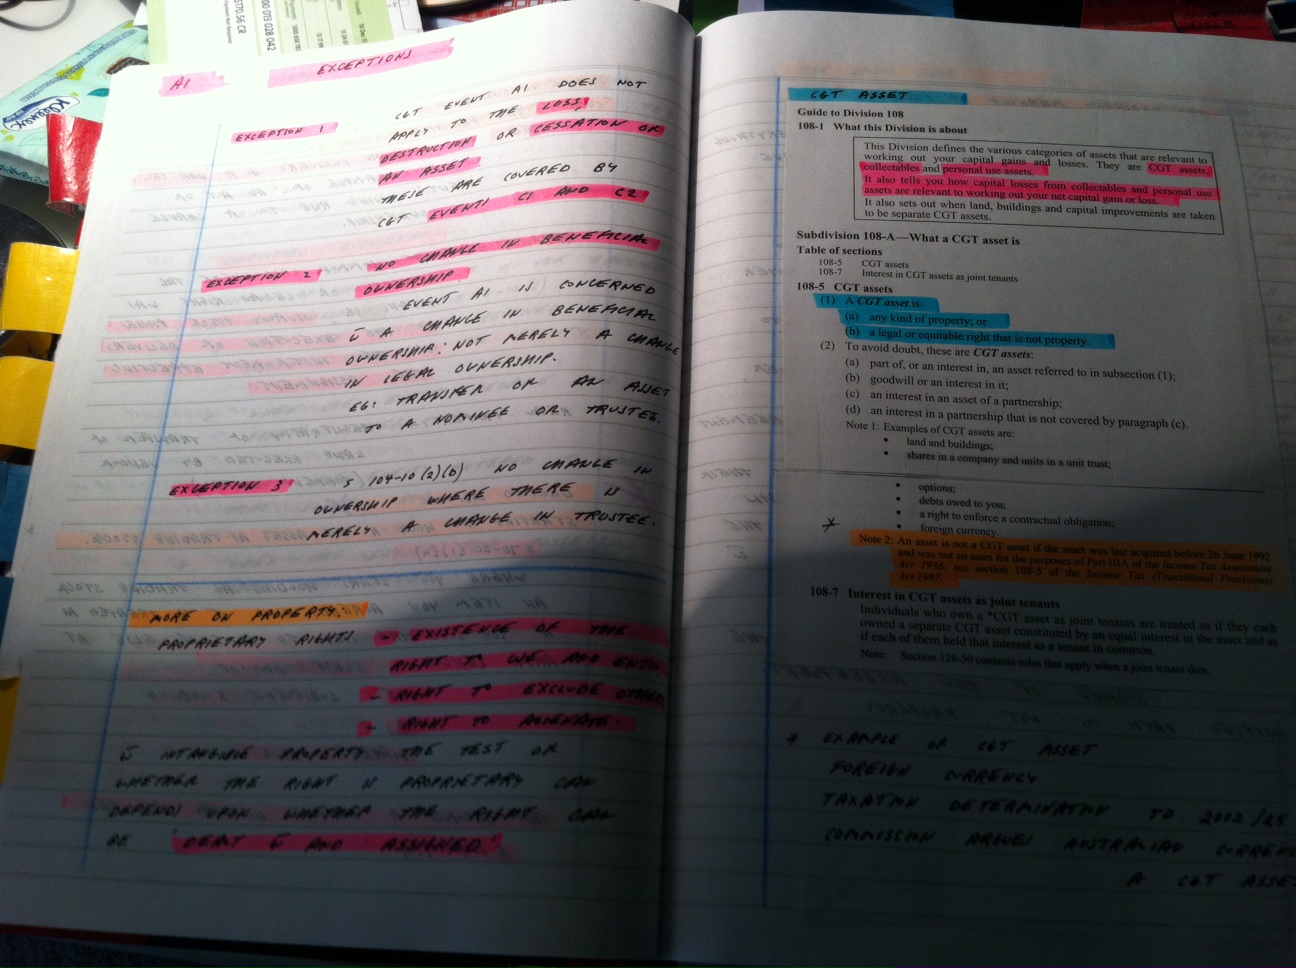 Kleenex
$170.56 CR
000 013 028 042
A1
EXCEPTIONS
EXCEPTION 1
CGT EVENT A1 DOES NOT
APPLY TO THE LOSS,
DESTRUCTION OR CESSATION OF
AN ASSET
THESE ARE COVERED BY
CGT EVENTS C1 AND C2
EXCEPTION 2
NO CHANGE IN BENEFICIAL
OWNERSHIP
EVENT A1 IS CONCERNED
A CHANGE IN BENEFICIAL
OWNERSHIP; NOT MERELY A CHANGE
IN LEGAL OWNERSHIP.
EG: TRANSFER OF AN ASSET
TO A NOMINEE OR TRUSTEE.
EXCEPTION 3
S 104-10 (2)(b) NO CHANGE IN
OWNERSHIP WHERE THERE IS
MERELY A CHANGE IN TRUSTEE.
MORE ON PROPERTY.
PROPRIETARY RIGHTS - EXISTENCE OF THE
RIGHT TO USE AND ENJOY
- RIGHT TO EXCLUDE OTHERS
- RIGHT TO ALIENATE.
INTANGIBLE PROPERTY THE TEST OF
WHETHER THE RIGHT IS PROPRIETARY CAN
DEPEND UPON WHETHER THE RIGHT CAN
BE 'DEALT AND ASSIGNED'
CGT ASSET
Guide to Division 108
108-1 What this Division is about
This Division defines the various categories of assets that are relevant to
working out your capital gains and losses. They are CGT assets,
collectables and personal use assets.
It also tells you how capital losses from collectables and personal use
assets are relevant to working out your net capital gain or loss.
It also sets out when land, buildings and capital improvements are taken
to be separate CGT assets.
Subdivision 108-A—What a CGT asset is
Table of sections
108-5 CGT assets
108-7 Interest in CGT assets as joint tenants
108-5 CGT assets
(1) A CGT asset is:
(a) any kind of property; or
(b) a legal or equitable right that is not property.
(2) To avoid doubt, these are CGT assets:
(a) part of, or an interest in, an asset referred to in subsection (1);
(b) goodwill or an interest in it;
(c) an interest in an asset of a partnership;
(d) an interest in a partnership that is not covered by paragraph (c).
Note 1: Examples of CGT assets are:
• land and buildings;
• shares in a company and units in a unit trust;
• options;
• debts owed to you;
• a right to enforce a contractual obligation;
• foreign currency.
* Note 2: An asset is not a CGT asset if the asset was last acquired before 26 June 1992
and was not an asset for the purposes of Part IIIA of the Income Tax Assessment
Act 1936: see section 108-5 of the Income Tax (Transitional Provisions)
Act 1997.
108-7 Interest in CGT assets as joint tenants
Individuals who own a *CGT asset as joint tenants are treated as if they each
owned a separate CGT asset constituted by an equal interest in the asset and as
if each of them held that interest as a tenant in common.
Note: Section 128-50 contains rules that apply when a joint tenant dies.
* EXAMPLE OF CGT ASSET
FOREIGN CURRENCY
TAXATION DETERMINATION TD 2002/25
COMMISSION ARGUES AUSTRALIAN CURRENC
A CGT ASSET